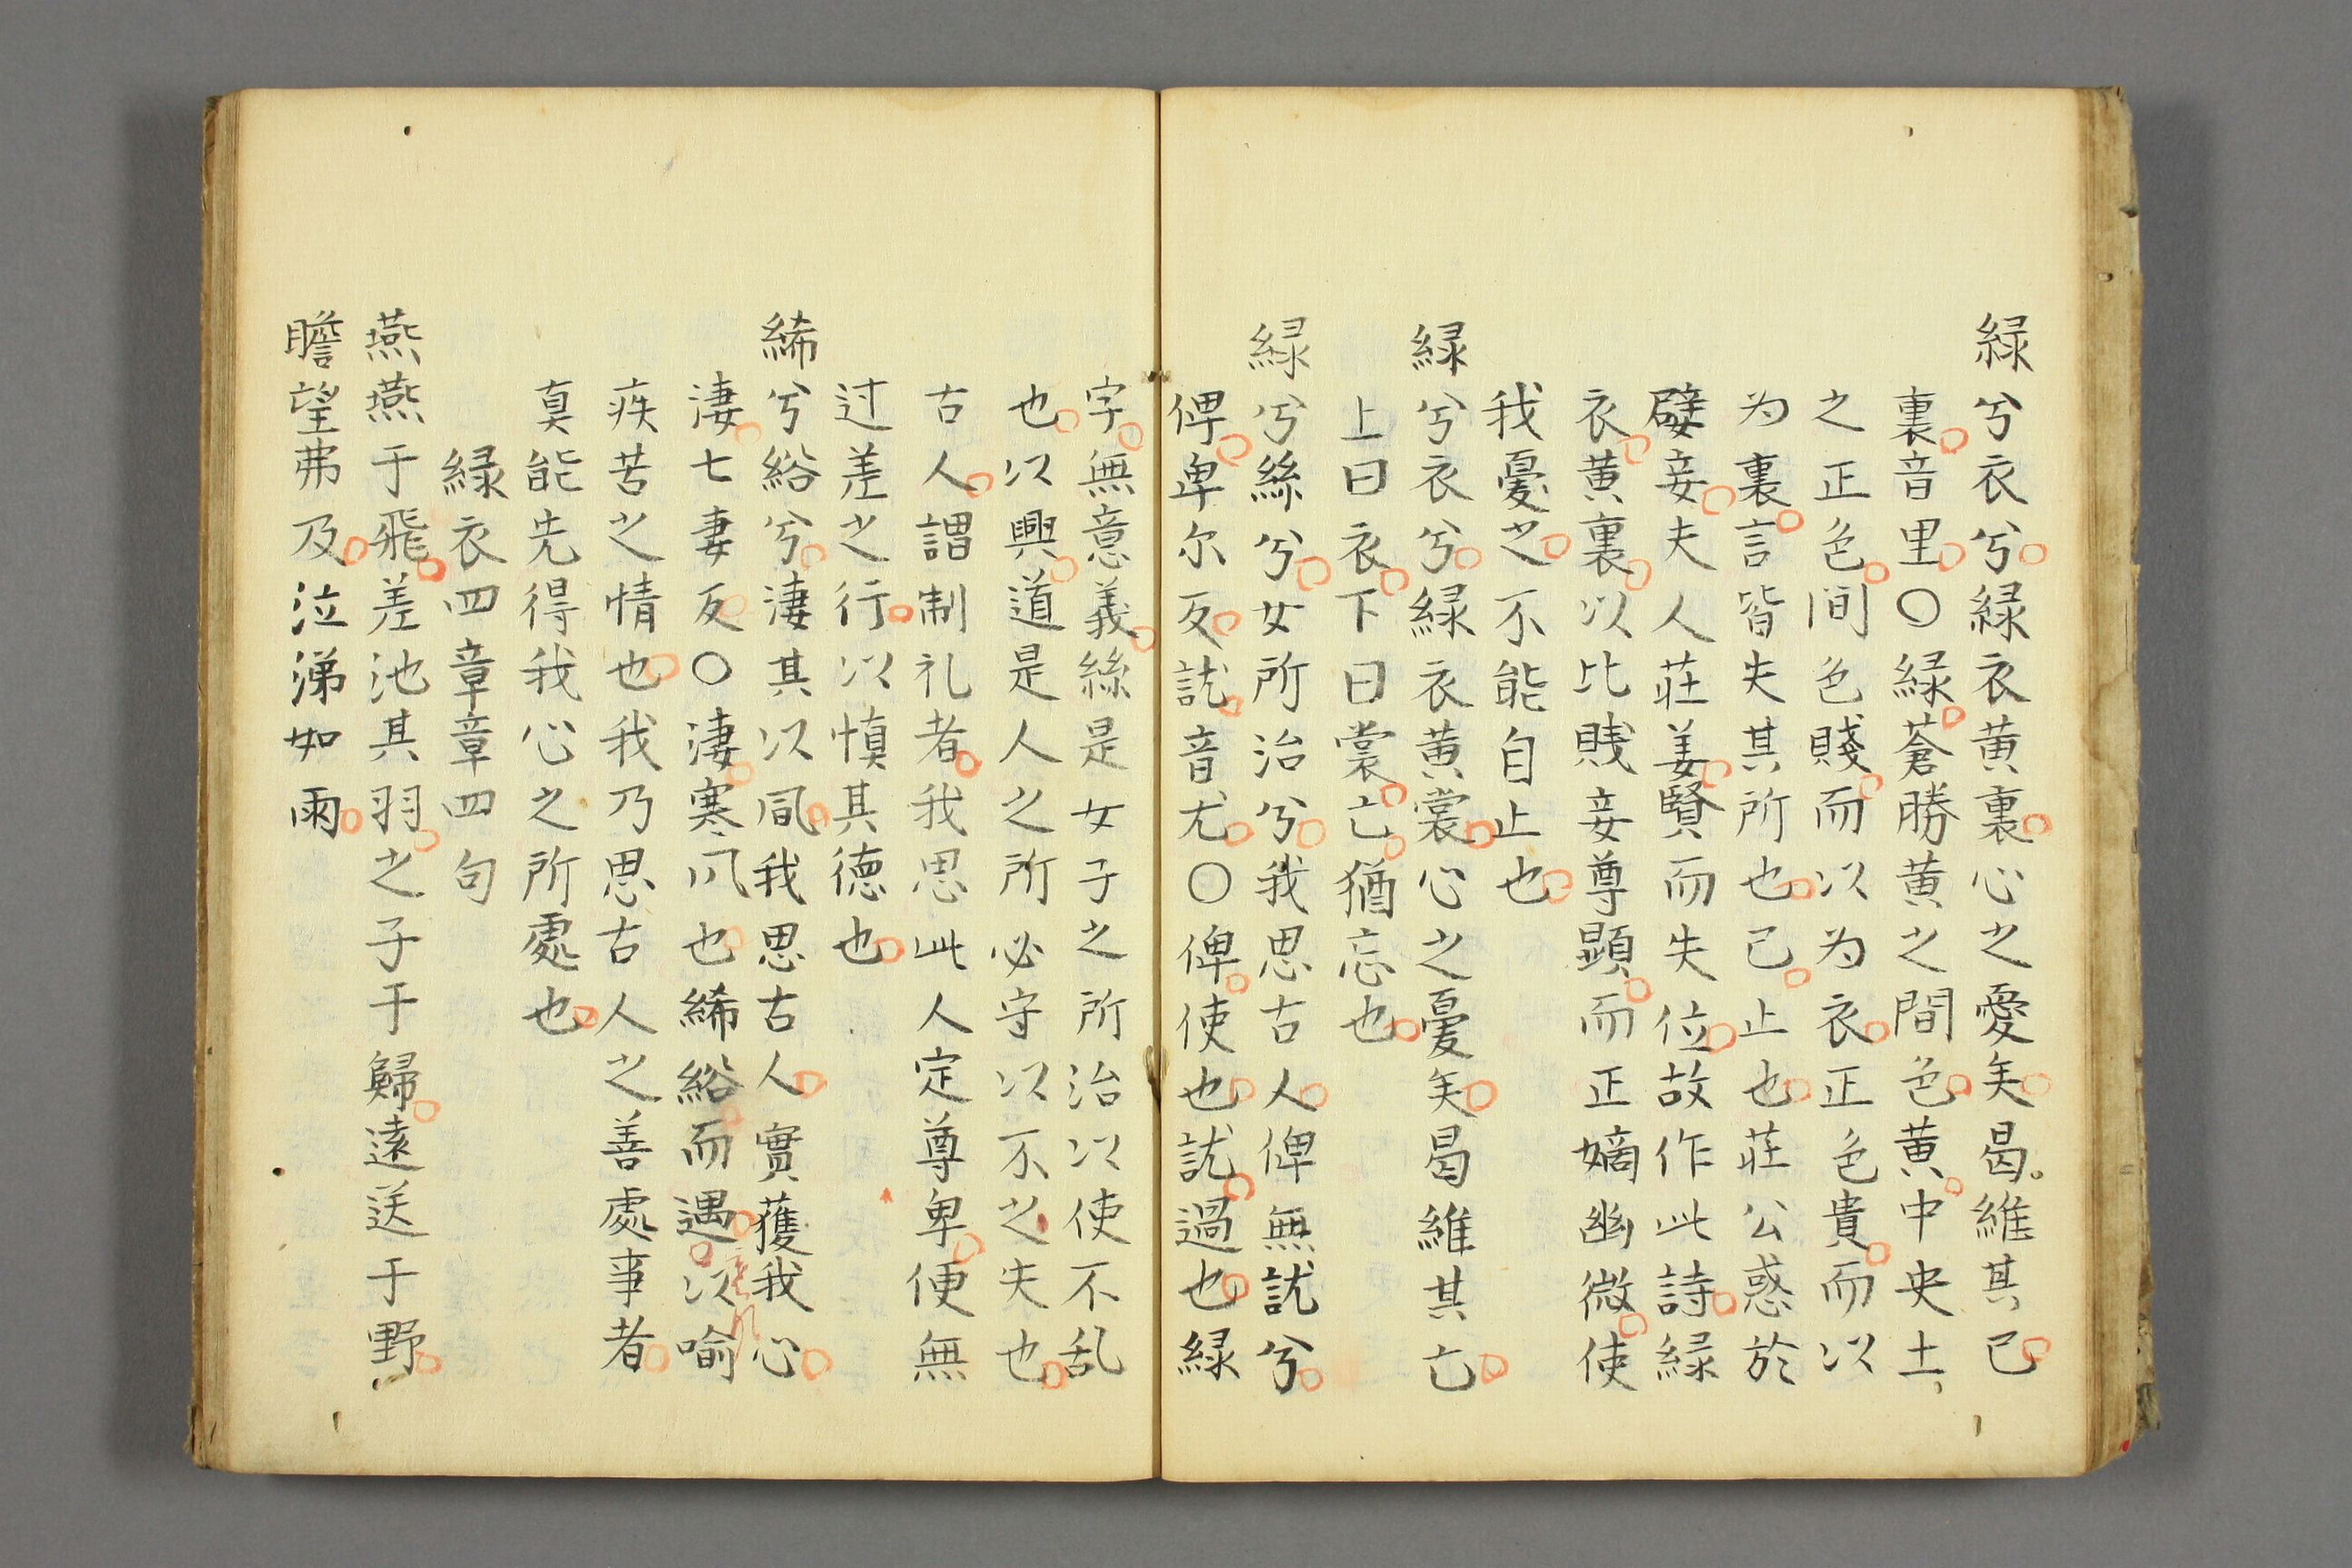 緑兮衣兮緑衣黄裏心之憂矣曷維其已
裏音里○緑蒼勝黄之間色黄中央土
之正色间色賤而以为衣正色貴而以
为裏言皆失其所也已止也莊公惑於
嬖妾夫人莊姜賢而失位故作此詩緑
衣黄裏以比賎妾尊顕而正嫡幽微使
我憂之不能自止也
緑兮衣兮緑衣黄裳心之憂矣曷維其亡
上曰衣下曰裳亡猶忘也
緑兮絲兮女所治兮我思古人俾無訧兮
俾卑尔反訧音尤○俾使也訧過也緑
字無意義絲是女子之所治以使不乱
也以興道是人之所必守以不之失也
古人謂制礼者我思此人定尊卑便無
过差之行以慎其德也
絺兮綌兮淒其以風我思古人實獲我心
淒七妻反○淒寒风也絺綌而遇以喻
寒风
疾苦之情也我乃思古人之善處事者
真能先得我心之所處也
緑衣四章章四句
燕燕于飛差池其羽之子于歸遠送于野
瞻望弗及泣涕如雨